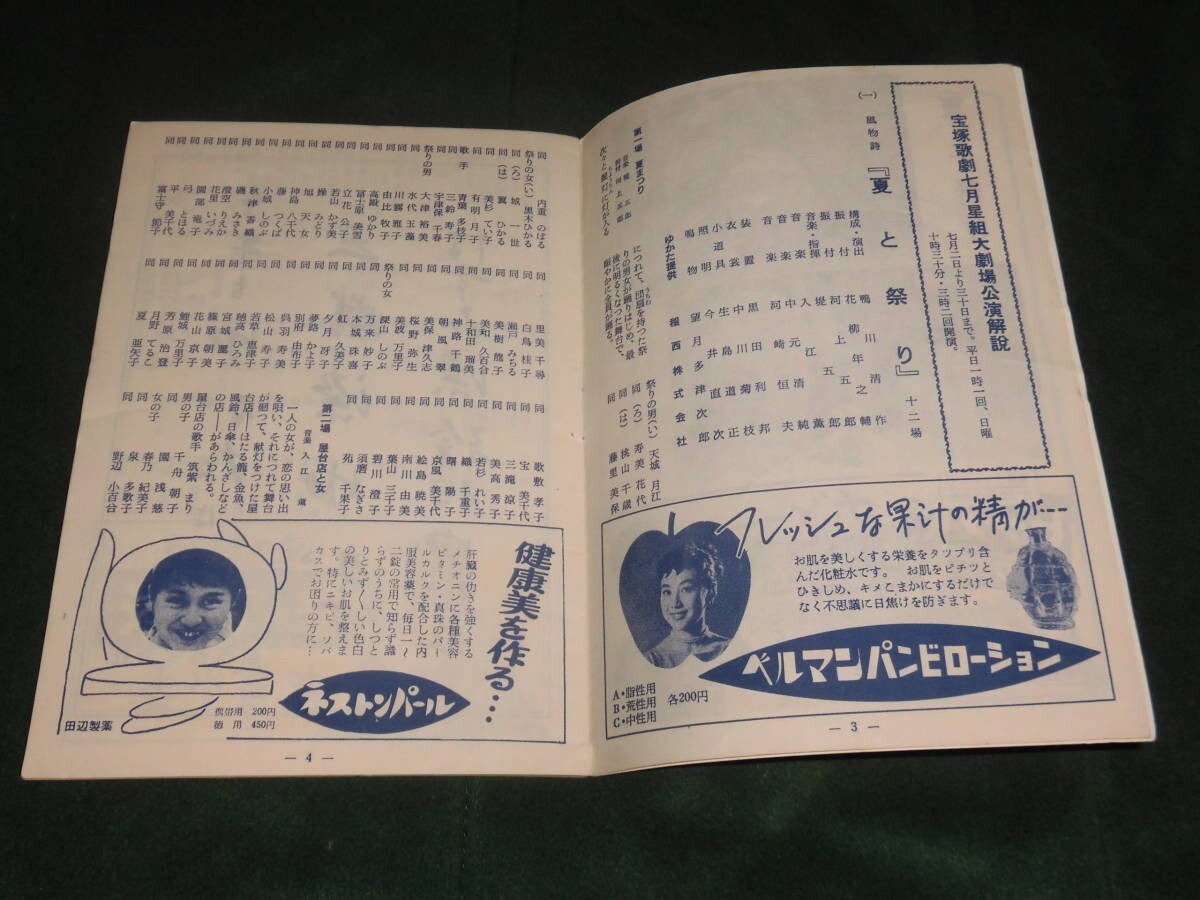 宝塚歌劇七月星組大劇場公演解説
七月二日より三十日まで。平日一時一回、日曜
十時三十分・三時二回開演。
(一) 風物詩 『夏と祭り』 十二場
構成・演出 鴨川清作
振付 花柳年之輔
振付 河上五郎
音楽・指揮 堤五郎
音楽 入江薫
音楽 中元清純
音楽 河崎恒夫
装置 黒田利邦
衣裳 中川菊枝
小道具 生島道正
照明 今井直次
鳴物 望月多津次郎
ゆかた提供 稲西株式会社
第一場 夏まつり
次々と提灯に灯が入る
につれて、団扇を持つた祭
りの男女が踊りはじめ、最
後に明るくなつた舞台で、
賑やかに全員が踊る。
祭りの男(い) 天城月江
同(ろ) 寿美花代
同(は) 桃山千歳
同 藤里美保
フレッシュな果汁の精が--
お肌を美しくする栄養をタツプリ含
んだ化粧水です。 お肌をピチツと
ひきしめ、キメこまかにするだけで
なく不思議に日焦けを防ぎます。
ベルマンパンビローション
A・脂性用
B・荒性用
C・中性用
各200円
— 3 —
同 内重のぼる
祭りの女(い) 黒木ひかる
同(ろ) 城一世
同(は) 翼ひかる
同 美杉てい子
同 有明月子
歌手 青葉多枝子
同 三鈴寿子
同 宇津保千春
祭りの男 大津裕美
同 水代玉藻
同 川霧雅子
同 由比牧子
同 高殿ゆかり
同 冨士原美雪
同 立花公子
同 若山かず美
同 操みどり
同 旭天女
同 沖島八千代
同 藤つくば
同 小城しのぶ
同 秋津香織
同 磯みさき
同 澄空りえか
同 花里いづみ
同 園部竜子
同 弓とほる
同 平美千代
同 富士守節子
同 里美千尋
同 白鳥桂子
同 瀬戸みちる
同 美和久百合
同 十和田瑠美
同 神路千鶴
同 美樹龍子
同 朝風翠
同 美保津久志
同 桜野弥生
同 美波万里子
祭りの女 深山しのぶ
同 万来妙子
同 本城珠喜
同 虹久美子
同 夕月冴子
同 夢路かよ子
同 別府由布子
同 呉羽寿美
同 松山寿子
同 若草恵津子
同 穂高ひろみ
同 宮城麗子
同 篠原朝美
同 花山京子
同 鯱城万里子
同 芳原治登
同 月野てるこ
同 夏亜矢子
同 歌敷孝子
同 宝美千代
同 三滝涼子
同 美高秀子
同 若杉れい子
同 織千重子
同 曙陽子
同 京風美千代
同 絵島暁美
同 南川由美
同 葉山三千子
同 碧川澄子
同 須磨なぎさ
同 苑千果子
第二場 屋台店と女
音楽 入江薫
一人の女が、恋の思い出
を唄い、それにつれて舞台
が廻つて、献灯をつけた屋
台店――ほたる籠、金魚、
風鈴、日傘、かんざしなど
の店――があらわれる。
屋台店の歌手 筑紫まり
男の子 千舟朝子
同 園浅慈
女の子 春乃紀美子
同 泉多歌子
同 野辺小百合
健康美を作る…
肝臓の仂きを強くする
メチオニンに各種美容
ビタミン・真珠のパー
ルカルクを配合した内
服美容薬で、毎日一〜
二錠の常用で知らず識
らずのうちに、しつと
りとみずみずしい色白
の美しいお肌を整えま
す。特にニキビ、ソバ
カスでお困りの方に…
ネストンパール
携帯用 200円
徳用 450円
田辺製薬
— 4 —